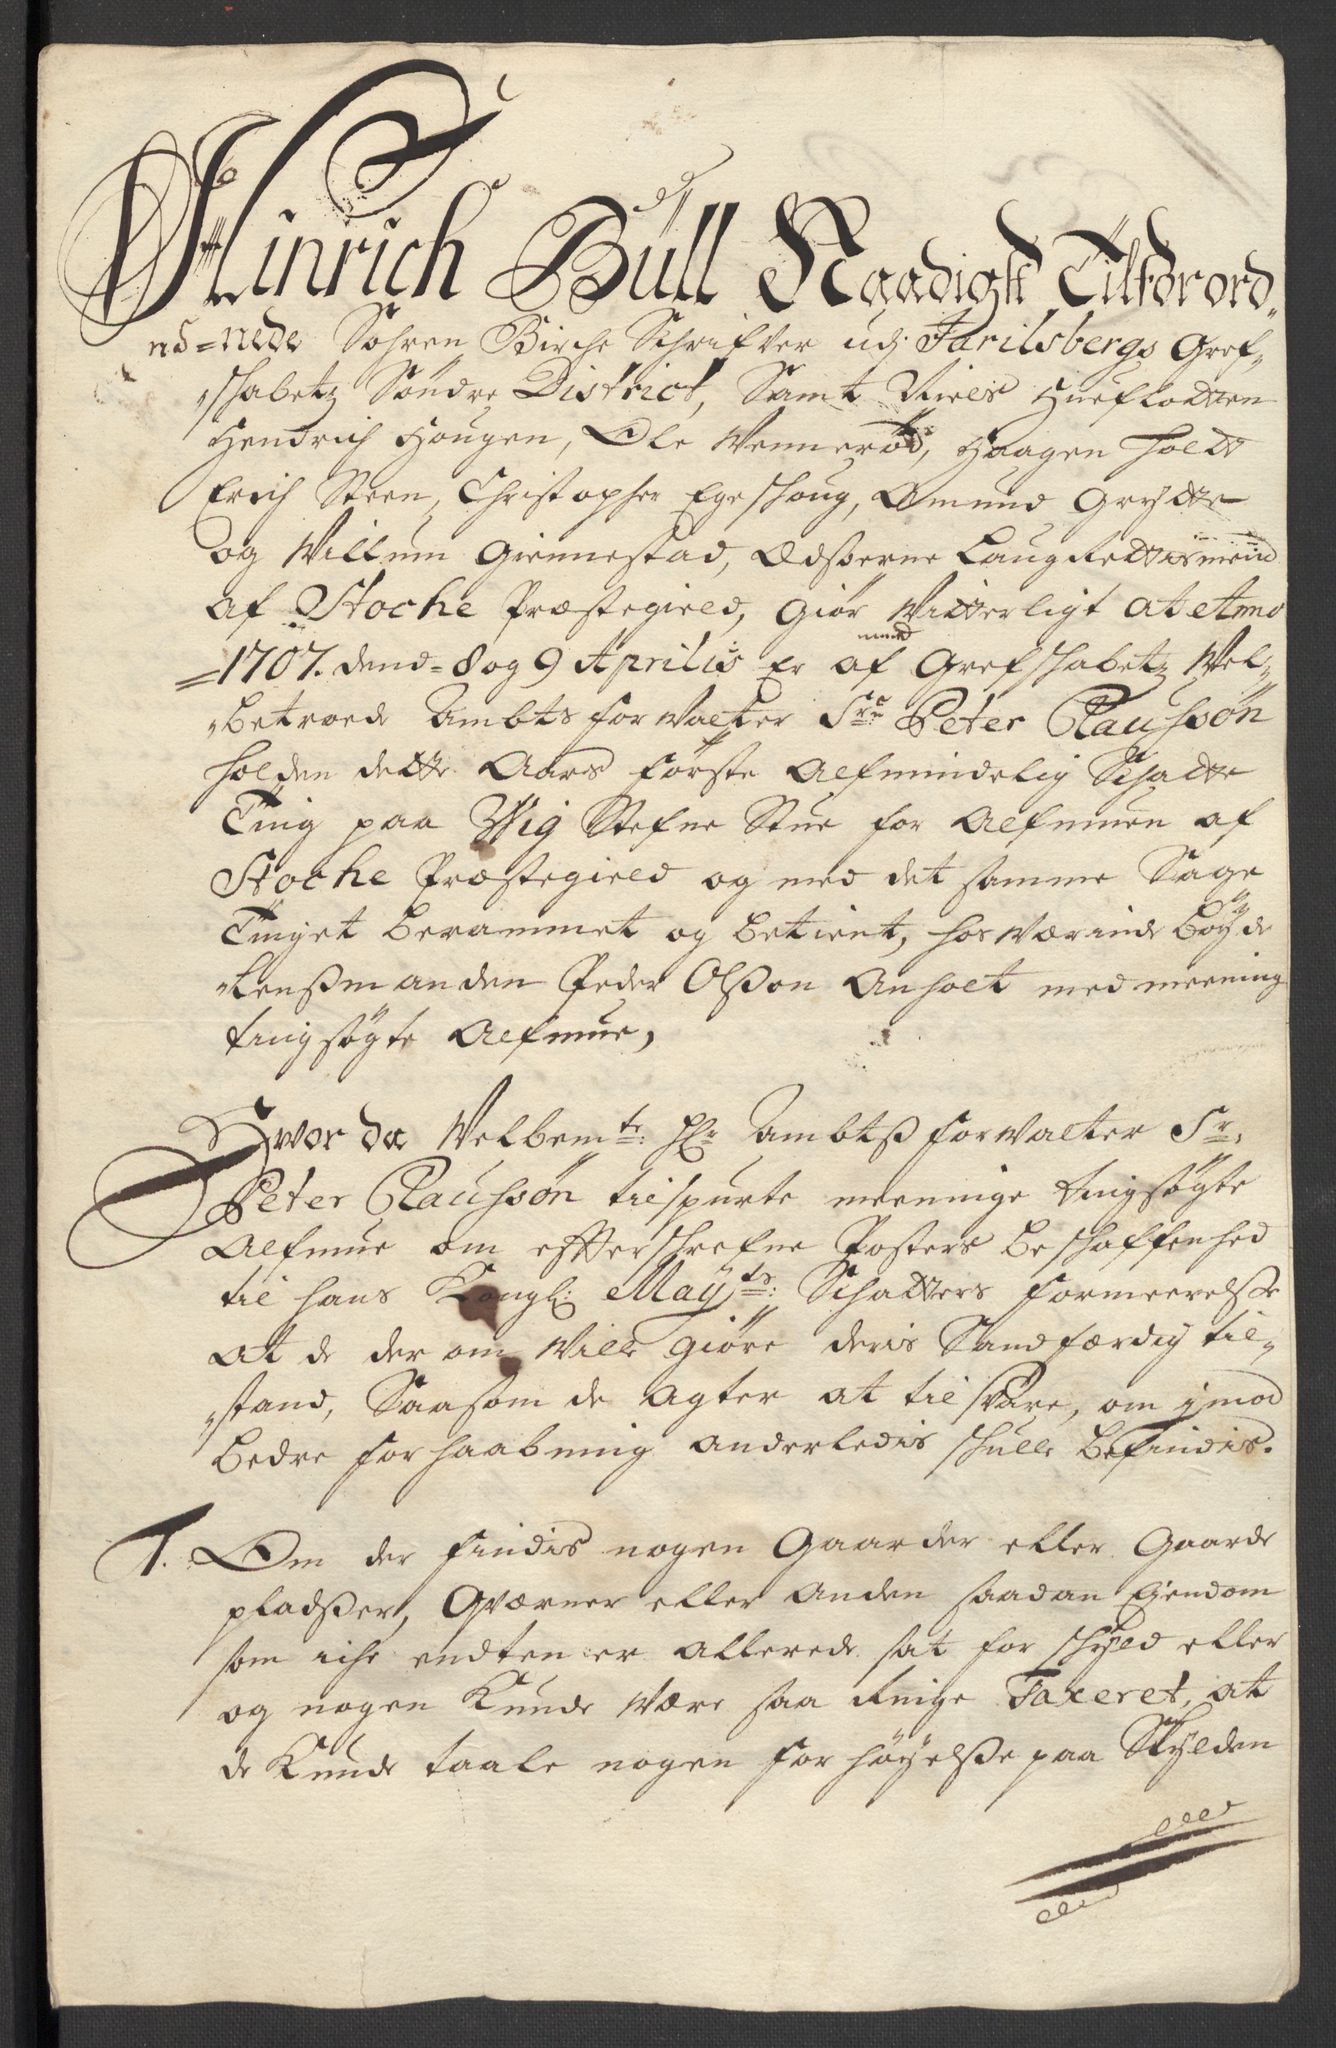 Hinrich Bull Naadigst Tilforord„
nd=nede Sohren Birche Schrifver udj Jarilsbergs Gref„
„schabetz Söndre District, Samt Niels Hueflotten
Hendrich Hougen, Ole Wennerød, Haagen Holdt
Erich Steen, Christopher Egeschoug, Omund Grytte
og Villum Giennestad, Edsorne Laugrettismend
af Stoche Præstegield, Giør Vitterligt at Anno
1707. dend 8 og 9 Aprilis Er af Grefschabetz Wel„
„betroede Ambts forvalter Sr. Peter Claussøn
holden dette Aars første Alfmindelig Schatte
Ting paa Wig Stefne Stue for Alfmuen af
Stoche Præstegield og med det samme Sage
Tinget berammet og betient, hosværinde Bøyde
„Lensmanden Peder Olsson Anholt med meening
tingsøgte Alfmue,
Hvor da Welbemte: Hr: Ambtsforvalter Sr.
Peter Claussøn tilspurte meeninge tingsøgte
Alfmue om effterschrefne Posters beschaffenhed
til hans Kongl: Mayts: Schatters formeerelse
at de der om Ville giøre deris Sandfærdig til„
„stand, Saasom de agter at tilsvare, om imod
bedre forhaabning anderledis schulle befindis.
1. Om der findis nogen Gaarder eller Gaarde
pladser, Qværner eller anden saadan Ejendom
som iche endten er allerede sat for schyld eller
og nogen kunde være saa ringe Taxeret, at
de kunde taale nogen forhøyelse paa Skylden